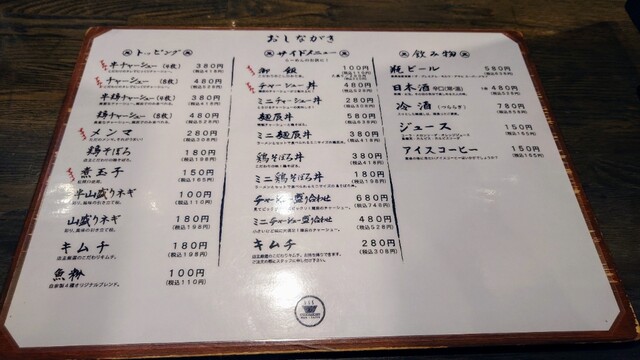 おしながき
トッピング
半チャーシュー(4枚) 380円
(税込418円)
チャーシュー(8枚) 480円
(税込528円)
半鶏チャーシュー(4枚) 380円
(税込418円)
鶏チャーシュー(8枚) 480円
(税込528円)
メンマ 280円
(税込308円)
鶏そぼろ 180円
(税込198円)
煮玉子 150円
(税込165円)
半山盛りネギ 100円
(税込110円)
山盛りネギ 180円
(税込198円)
キムチ 180円
店主厳選のこだわりキムチ。 (税込198円)
魚粉 100円
自家製4種オリジナルブレンド。 (税込110円)
サイドメニュー
らーめんのお供に!
御飯 100円
(税込110円)
チャーシュー丼 480円
(税込528円)
ミニチャーシュー丼 280円
(税込308円)
麺辰丼 580円
(税込638円)
ミニ麺辰丼 380円
(税込418円)
鶏そぼろ丼 380円
(税込418円)
ミニ鶏そぼろ丼 180円
(税込198円)
チャーシュー盛り合わせ 680円
(税込748円)
ミニチャーシュー盛り合わせ 480円
(税込528円)
キムチ 280円
(税込308円)
飲み物
瓶ビール 580円
(税込638円)
日本酒 辛口(冷・温) 480円
(税込528円)
冷酒 780円
(税込858円)
ジュース 150円
(税込165円)
アイスコーヒー 150円
(税込165円)